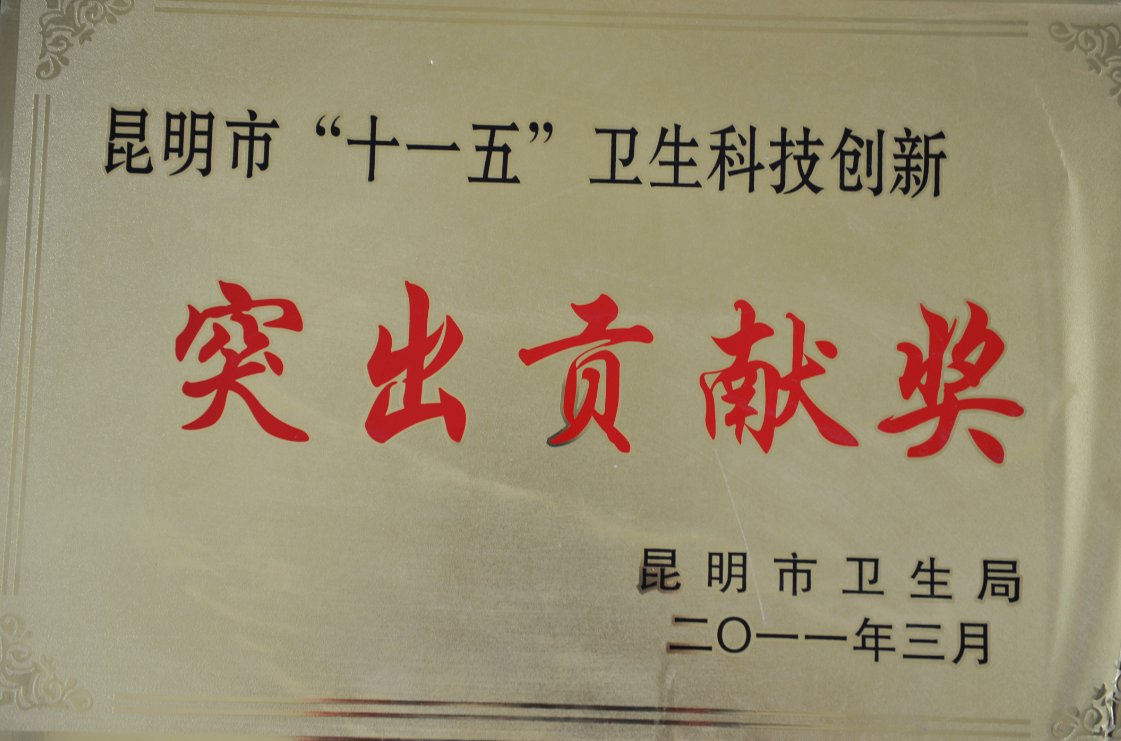 昆明市“十一五”卫生科技创新
突出贡献奖
昆明市卫生局
二〇一一年三月